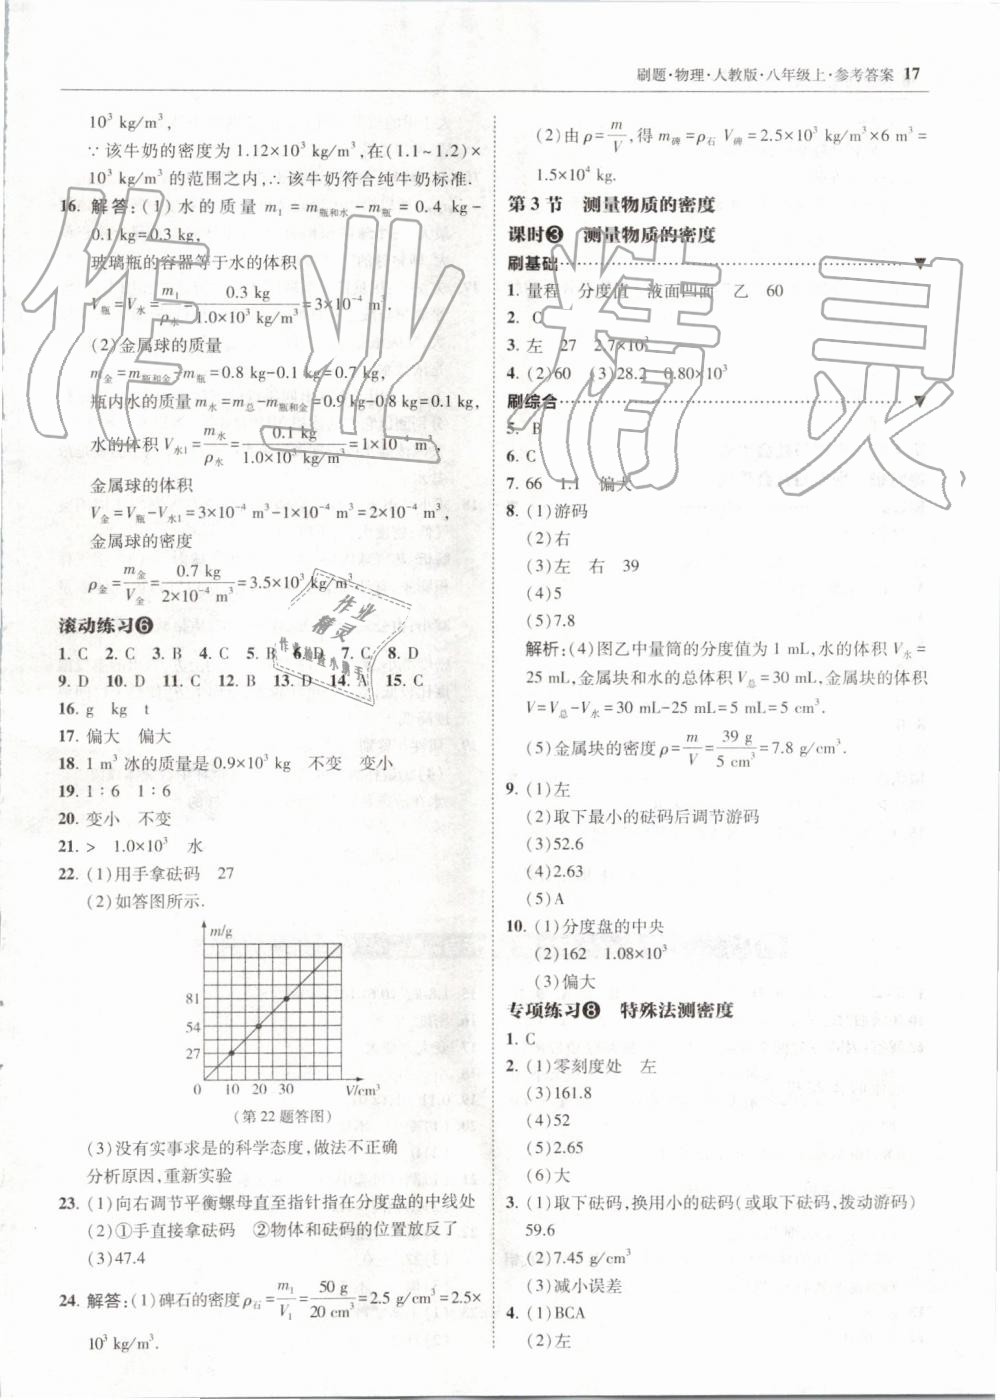 刷题·物理·人教版·八年级上·参考答案 17
10³ kg/m³,
∵该牛奶的密度为1.12×10³ kg/m³,在(1.1~1.2)×
10³ kg/m³ 的范围之内,∴该牛奶符合纯牛奶标准.
16. 解答:(1)水的质量 m₁=m瓶和水-m瓶=0.4 kg-
0.1 kg=0.3 kg,
玻璃瓶的容器等于水的体积
V瓶=V水=m₁/ρ水=0.3 kg/1.0×10³ kg/m³=3×10⁻⁴ m³.
(2)金属球的质量
m金=m瓶和金-m瓶=0.8 kg-0.1 kg=0.7 kg,
瓶内水的质量m水=m总-m瓶和金=0.9 kg-0.8 kg=0.1 kg,
水的体积V水1=m水/ρ水=0.1 kg/1.0×10³ kg/m³=1×10⁻⁴ m³,
金属球的体积
V金=V瓶-V水1=3×10⁻⁴ m³-1×10⁻⁴ m³=2×10⁻⁴ m³,
金属球的密度
ρ金=m金/V金=0.7 kg/2×10⁻⁴ m³=3.5×10³ kg/m³.
滚动练习❻
1. C 2. C 3. B 4. C 5. B 6. D 7. C 8. D
9. D 10. D 11. C 12. B 13. D 14. A 15. C
16. g kg t
17. 偏大 偏大
18. 1 m³冰的质量是0.9×10³ kg 不变 变小
19. 1∶6 1∶6
20. 变小 不变
21. > 1.0×10³ 水
22. (1)用手拿砝码 27
(2)如答图所示.
m/g
81
54
27
0 10 20 30 V/cm³
(第22题答图)
(3)没有实事求是的科学态度,做法不正确
分析原因,重新实验
23. (1)向右调节平衡螺母直至指针指在分度盘的中线处
(2)①手直接拿砝码 ②物体和砝码的位置放反了
(3)47.4
24. 解答:(1)碑石的密度ρ石=m₁/V₁=50 g/20 cm³=2.5 g/cm³=2.5×
10³ kg/m³.
(2)由ρ=m/V,得m碑=ρ石 V碑=2.5×10³ kg/m³×6 m³=
1.5×10⁴ kg.
第3节 测量物质的密度
课时❸ 测量物质的密度
刷基础
1. 量程 分度值 液面凹面 乙 60
2. C
3. 左 27 2.7×10³
4. (2)60 (3)28.2 0.80×10³
刷综合
5. B
6. C
7. 66 1.1 偏大
8. (1)游码
(2)右
(3)左 右 39
(4)5
(5)7.8
解析:(4)图乙中量筒的分度值为1 mL,水的体积V水=
25 mL,金属块和水的总体积V总=30 mL,金属块的体积
V=V总-V水=30 mL-25 mL=5 mL=5 cm³.
(5)金属块的密度ρ=m/V=39 g/5 cm³=7.8 g/cm³.
9. (1)左
(2)取下最小的砝码后调节游码
(3)52.6
(4)2.63
(5)A
10. (1)分度盘的中央
(2)162 1.08×10³
(3)偏大
专项练习❽ 特殊法测密度
1. C
2. (1)零刻度处 左
(3)161.8
(4)52
(5)2.65
(6)大
3. (1)取下砝码,换用小的砝码(或取下砝码,拨动游码)
59.6
(2)7.45 g/cm³
(3)减小误差
4. (1)BCA
(2)左
作业精灵
作业精灵
作业检查小帮手